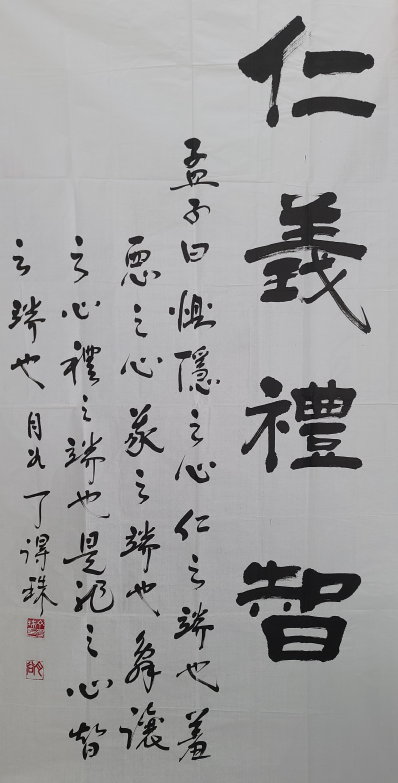 仁義禮智
孟子曰惻隱之心仁之端也羞
惡之心義之端也辭讓
之心禮之端也是非之心智
之端也 月 丁得珠